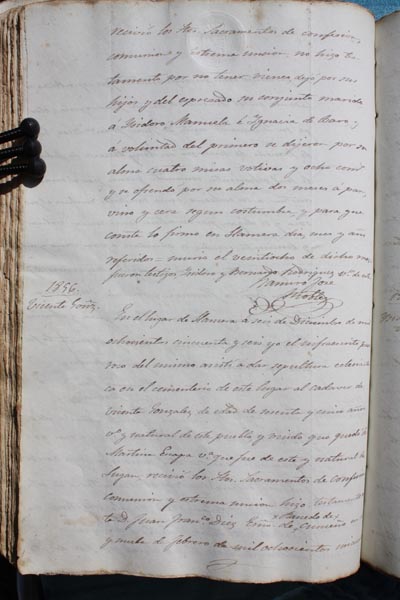 recivió los Stos. Sacramentos de confesion,
comunion y estrema uncion, no hizo tes
tamento por no tener vienes dejó por sus
hijos y del espresado su conjunto marido
á Ysidoro, Manuela é Ygnacia de
a voluntad del primero se dijeron por su
alma cuatro misas votivas y ocho
y se ofrendo por su alma dos meses á pan
vino y cera segun costumbre, y para que
conste lo firmo en dia, mes y año
referidos = murió el veintiocho de dicho mes
fueron testigos Ysidoro y Domingo Rodriguez
Ramiro José
Robles
1856
Vicente Gonz.
En el lugar de á seis de Diciembre de mil
ochocientos cincuenta y seis yo el infraescrito par
roco del mismo asisti a dar sepultura eclesiasti
ca en el cementerio de este lugar al cadaver de
Vicente Gonzalez de edad de años
vo. y natural de este pueblo y viudo que quedó de
Martina va. que fue de este y natural de
lugar, recivió los Stos. Sacramentos de confesion
comunion y estrema uncion hizo testamento
te D. Juan Franco. Diez
y nueve de febrero de mil ochocientos